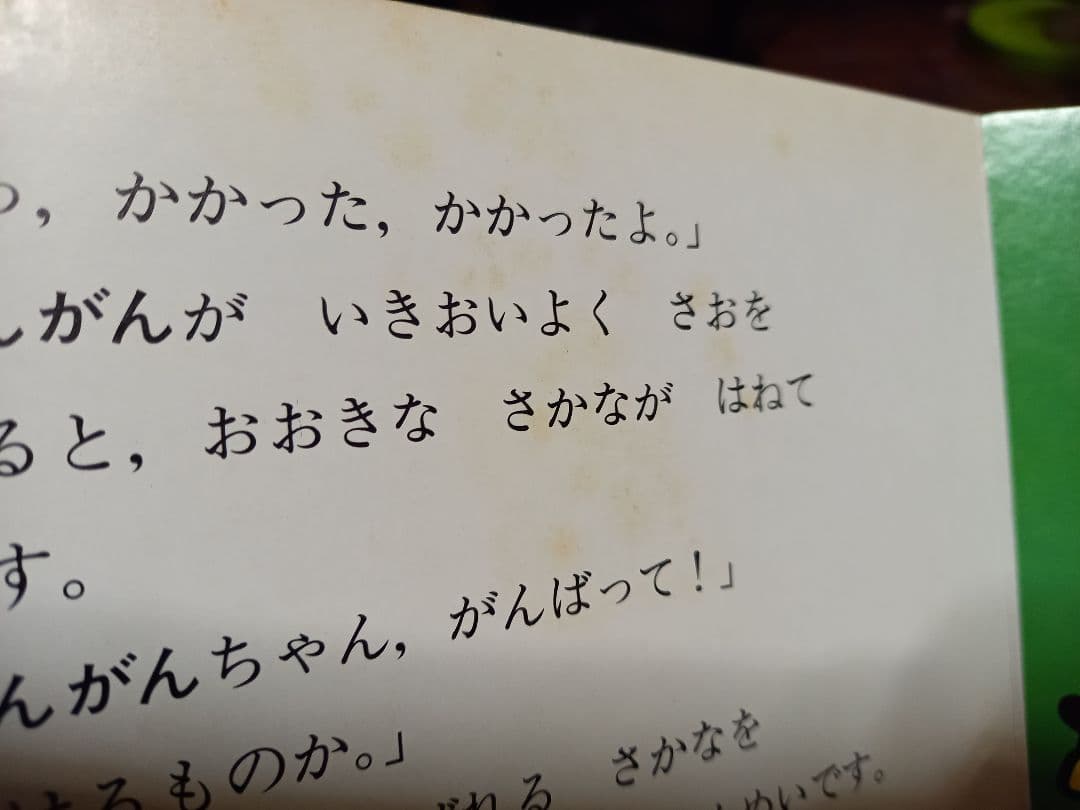 、かかった，かかったよ。」
んがんが　いきおいよく　さおを
ると，おおきな　さかなが　はねて
す。
んがんちゃん，がんばって！」
るものか。」
れる　さかなを
めいです。